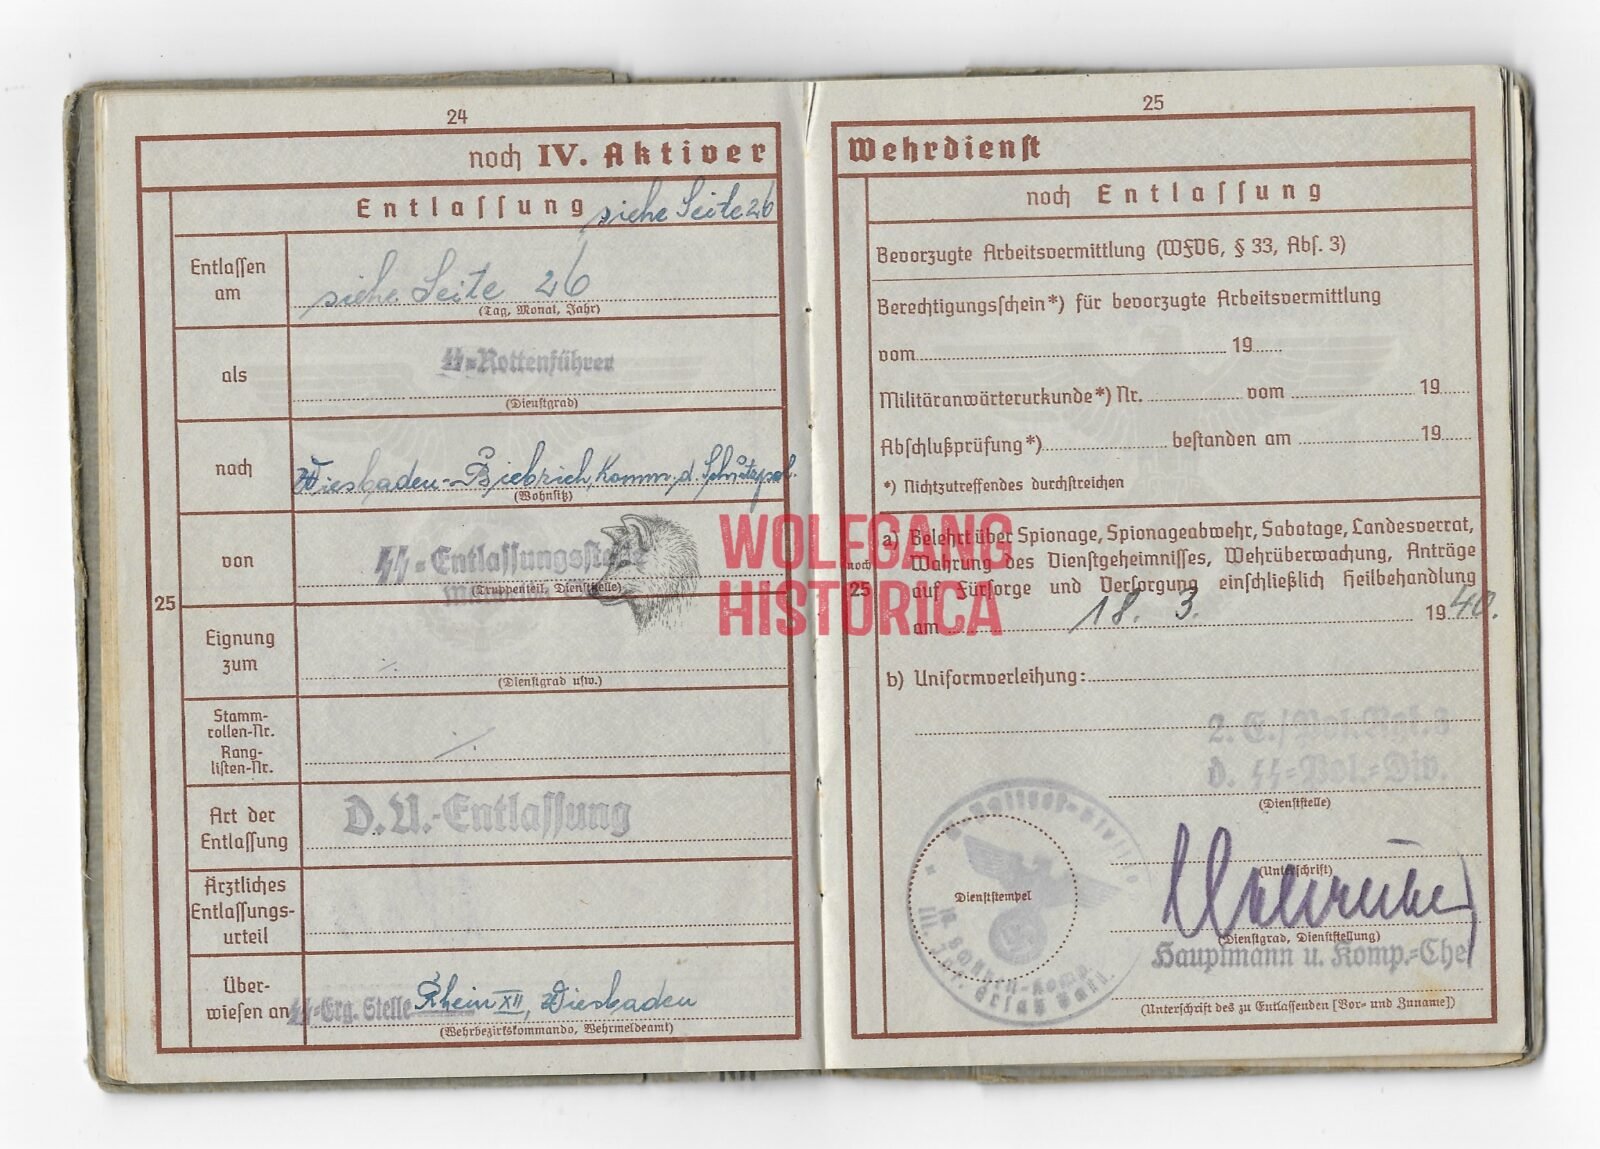 24
noch IV. Aktiver
Entlassung siehe Seite 26
Entlassen
am
siehe Seite 26
(Tag, Monat, Jahr)
als
SS-Rottenführer
(Dienstgrad)
nach
Wiesbaden-Biebrich, Komm. d. Schutzpol.
(Wohnsitz)
von
SS-Entlassungsstelle
(Truppenteil, Dienststelle)
25
Eignung
zum
(Dienstgrad usw.)
Stamm-
rollen-Nr.
Rang-
listen-Nr.
Art der
Entlassung
D.U.-Entlassung
Ärztliches
Entlassungs-
urteil
Über-
wiesen an
SS-Erg. Stelle Rhein XII, Wiesbaden
(Wehrbezirkskommando, Wehrmeldeamt)
WOLFGANG
HISTORICA
25
Wehrdienst
noch Entlassung
Bevorzugte Arbeitsvermittlung (WFVG, § 33, Abs. 3)
Berechtigungsschein*) für bevorzugte Arbeitsvermittlung
vom 19
Militäranwärterurkunde*) Nr. vom 19
Abschlußprüfung*) bestanden am 19
*) Nichtzutreffendes durchstreichen
noch
25
a) Belehrt über Spionage, Spionageabwehr, Sabotage, Landesverrat,
Wahrung des Dienstgeheimnisses, Wehrüberwachung, Anträge
auf Fürsorge und Versorgung einschließlich Heilbehandlung
am 18. 3. 1940.
b) Uniformverleihung:
2. E./Pol.Rgt.3
d. SS-Pol.-Div.
(Dienststelle)
Dienststempel
(Unterschrift)
(Dienstgrad, Dienststellung)
Hauptmann u. Komp.-Chef
(Unterschrift des zu Entlassenden [Vor- und Zuname])